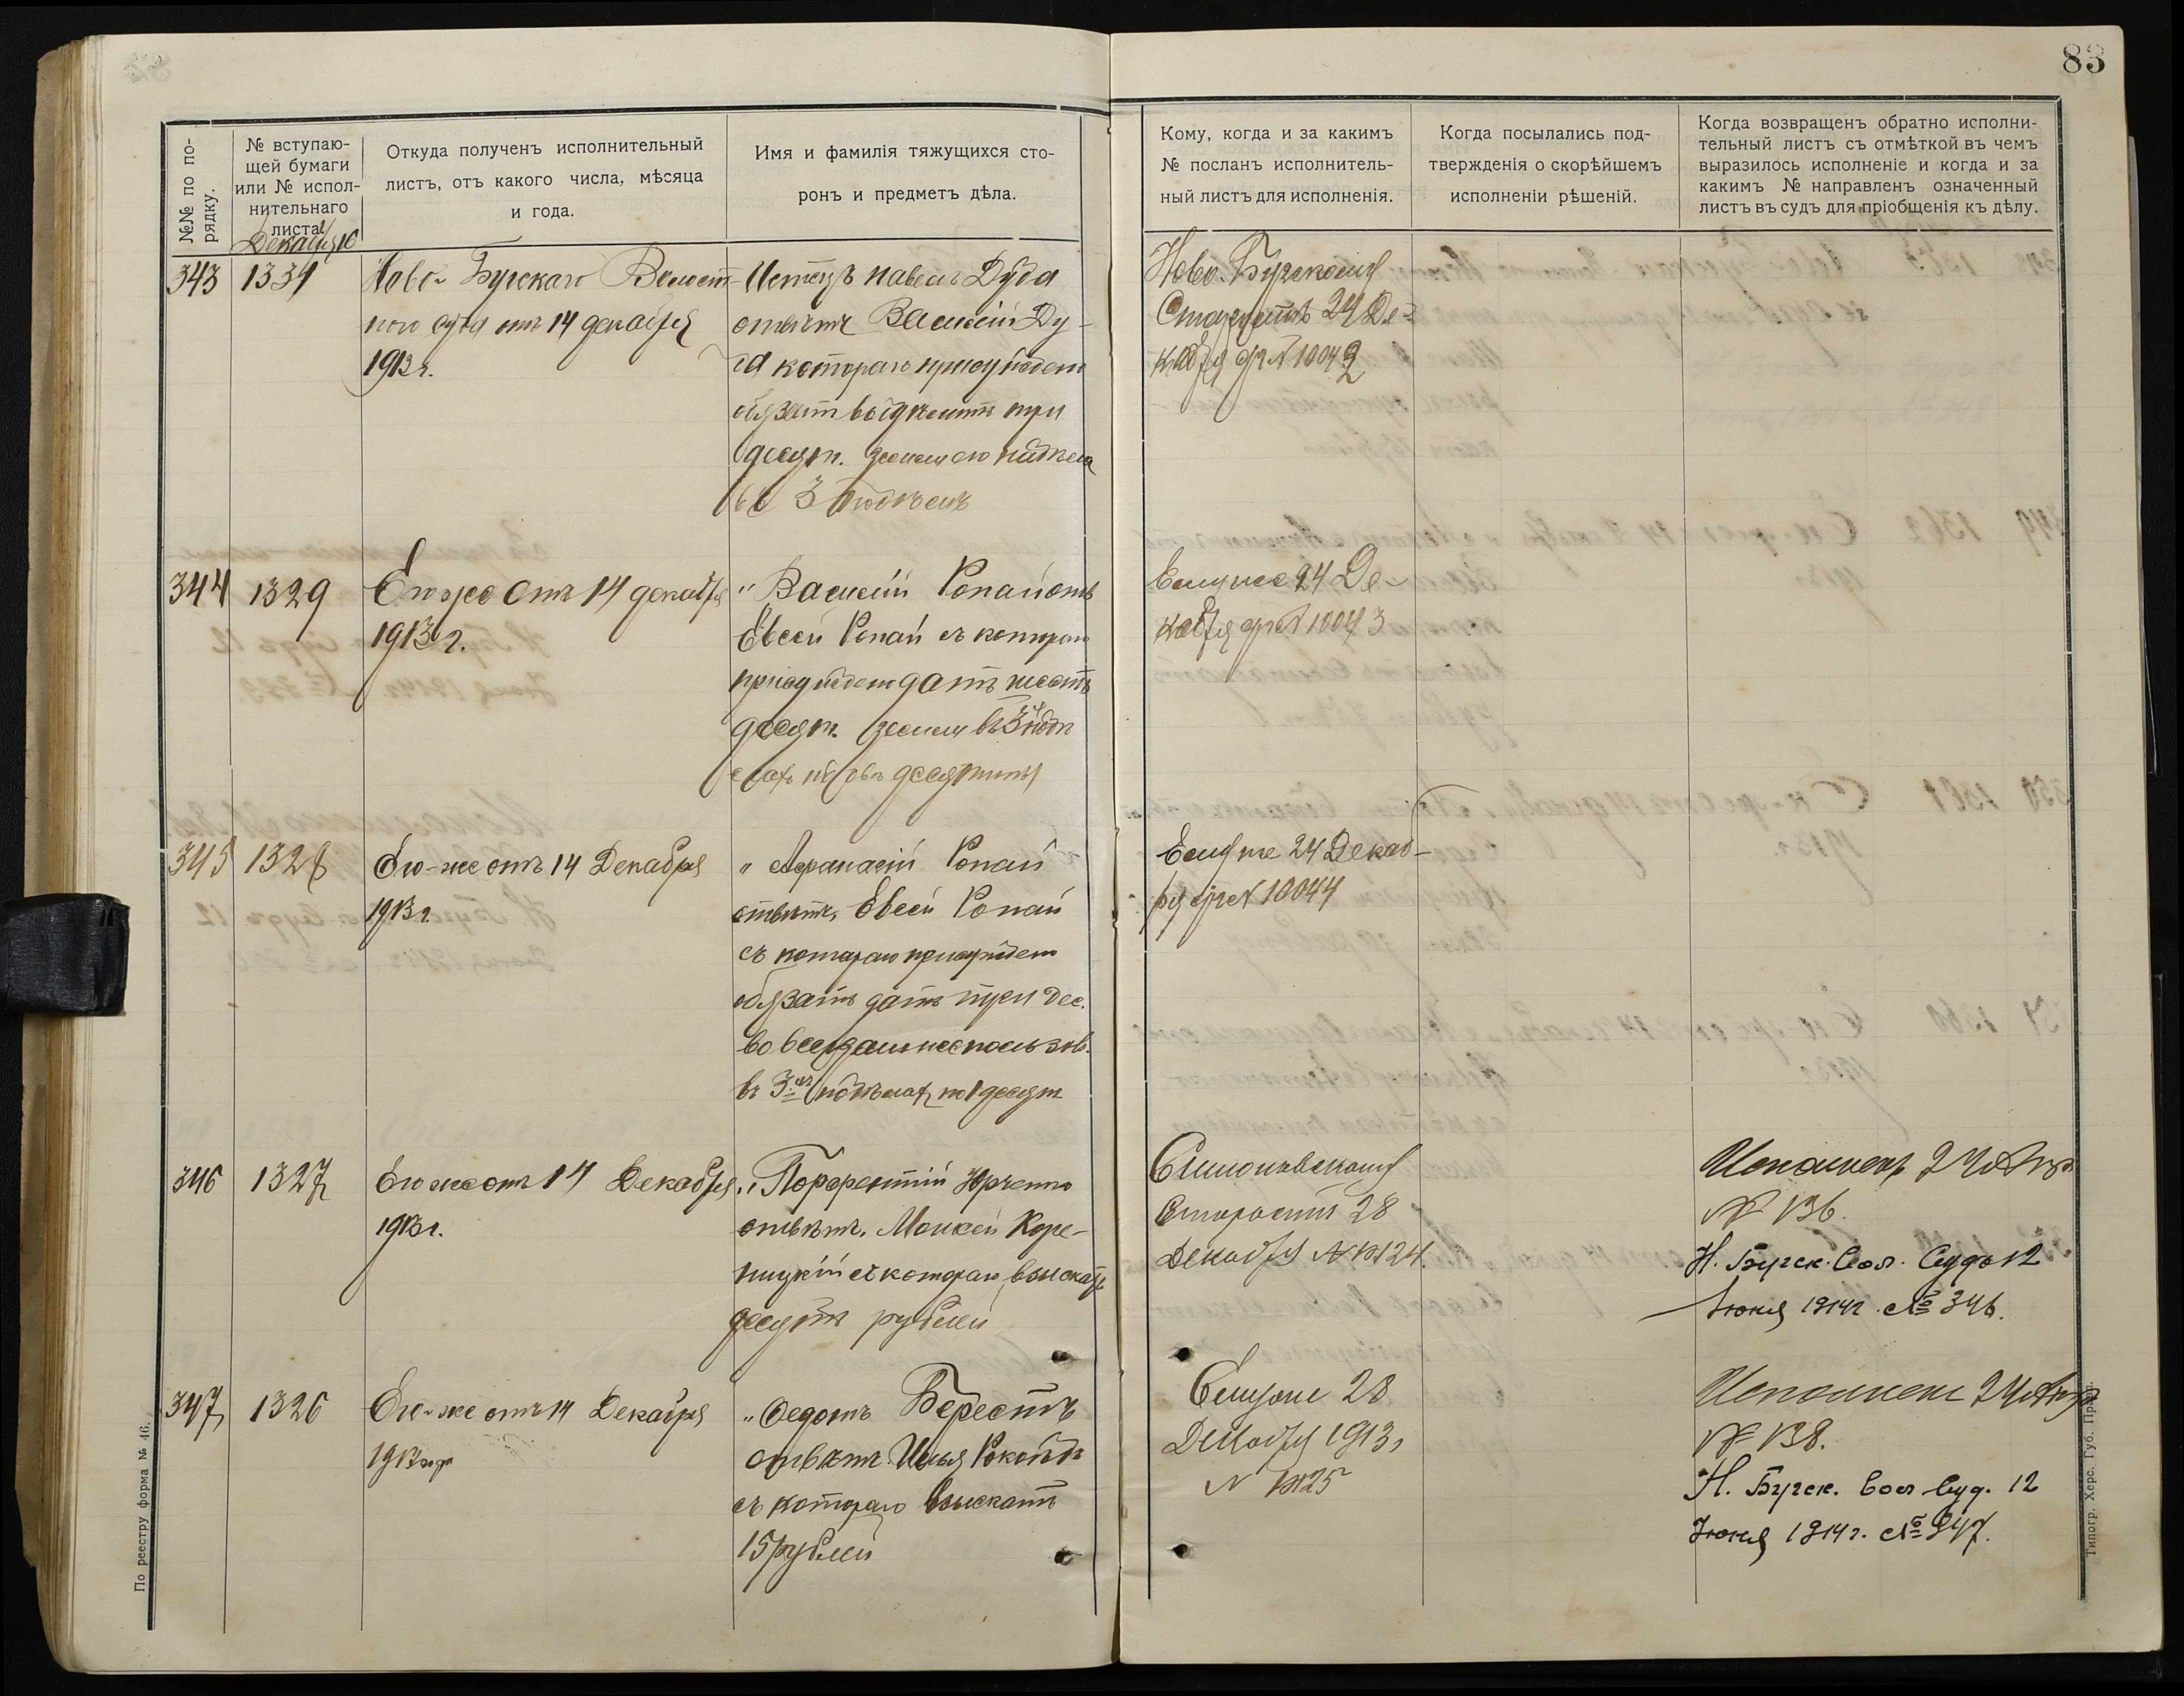 83
№№ по по-
рядку.
№ вступаю-
щей бумаги
или № испол-
нительнаго
листа
Откуда полученъ исполнительный
листъ, отъ какого числа, мѣсяца
и года.
Имя и фамилія тяжущихся сто-
ронъ и предметъ дѣла.
Кому, когда и за какимъ
№ посланъ исполнитель-
ный листъ для исполненія.
Когда посылались под-
твержденія о скорѣйшемъ
исполненіи рѣшеній.
Когда возвращенъ обратно исполни-
тельный листъ съ отмѣткой въ чемъ
выразилось исполненіе и когда и за
какимъ № направленъ означенный
листъ въ судъ для пріобщенія къ дѣлу.
Декабря
343
1331
Ново-Бугскаго Волост-
ного суда отъ 14 декабря
1913 г.
Истецъ Павелъ Дуда
отвѣтч Василій Ду-
да котораго присуждено
обязат выдѣлить три
десят. земли его надѣла
въ 3
Ново-Бугскому
Старостѣ 24 Де-
кабря № 10042
344
1329
Его же отъ 14 декабря
1913 г.
" Василій Ропай отв
Евсей Ропай съ котораго
присуждено дать шесть
десят. земли въ 3
по двѣ десятины
Ему же 24 Де-
кабря № 10043
345
1328
Его-же отъ 14 Декабря
1913 г.
" Афанасій Ропай
отвѣтч. Евсей Ропай
съ котораго присуждено
обязать дать три дес.
во всегдашнее пользов.
въ 3-хъ по 1 десят
Ему же 24 Декаб-
ря № 10044
346
1327
Его же отъ 14 Декабря
1913 г.
" Порфентій Юрченко
отвѣтч. Моисей Коре-
ницкій съ котораго взыскать
десять рублей
Симоновскому
Старостѣ 28
Декабря № 10124.
Исполнен 24 Апр
№ 136.
Н. Бугск. Вол. Суду 12
Іюня 1914 г. № 346.
347
1326
Его-же отъ 14 Декабря
1913 года
" Федотъ Берестъ
отвѣтч. Илья
съ котораго взыскать
15 рублей
Ему же 28
Декабря 1913 г
№ 10125
Исполнен 24 Апр
№ 138.
Н. Бугск. Вол Суд. 12
Іюня 1914 г. № 347.
По реестру форма № 16.
Типогр. Херс. Губ. Правл.